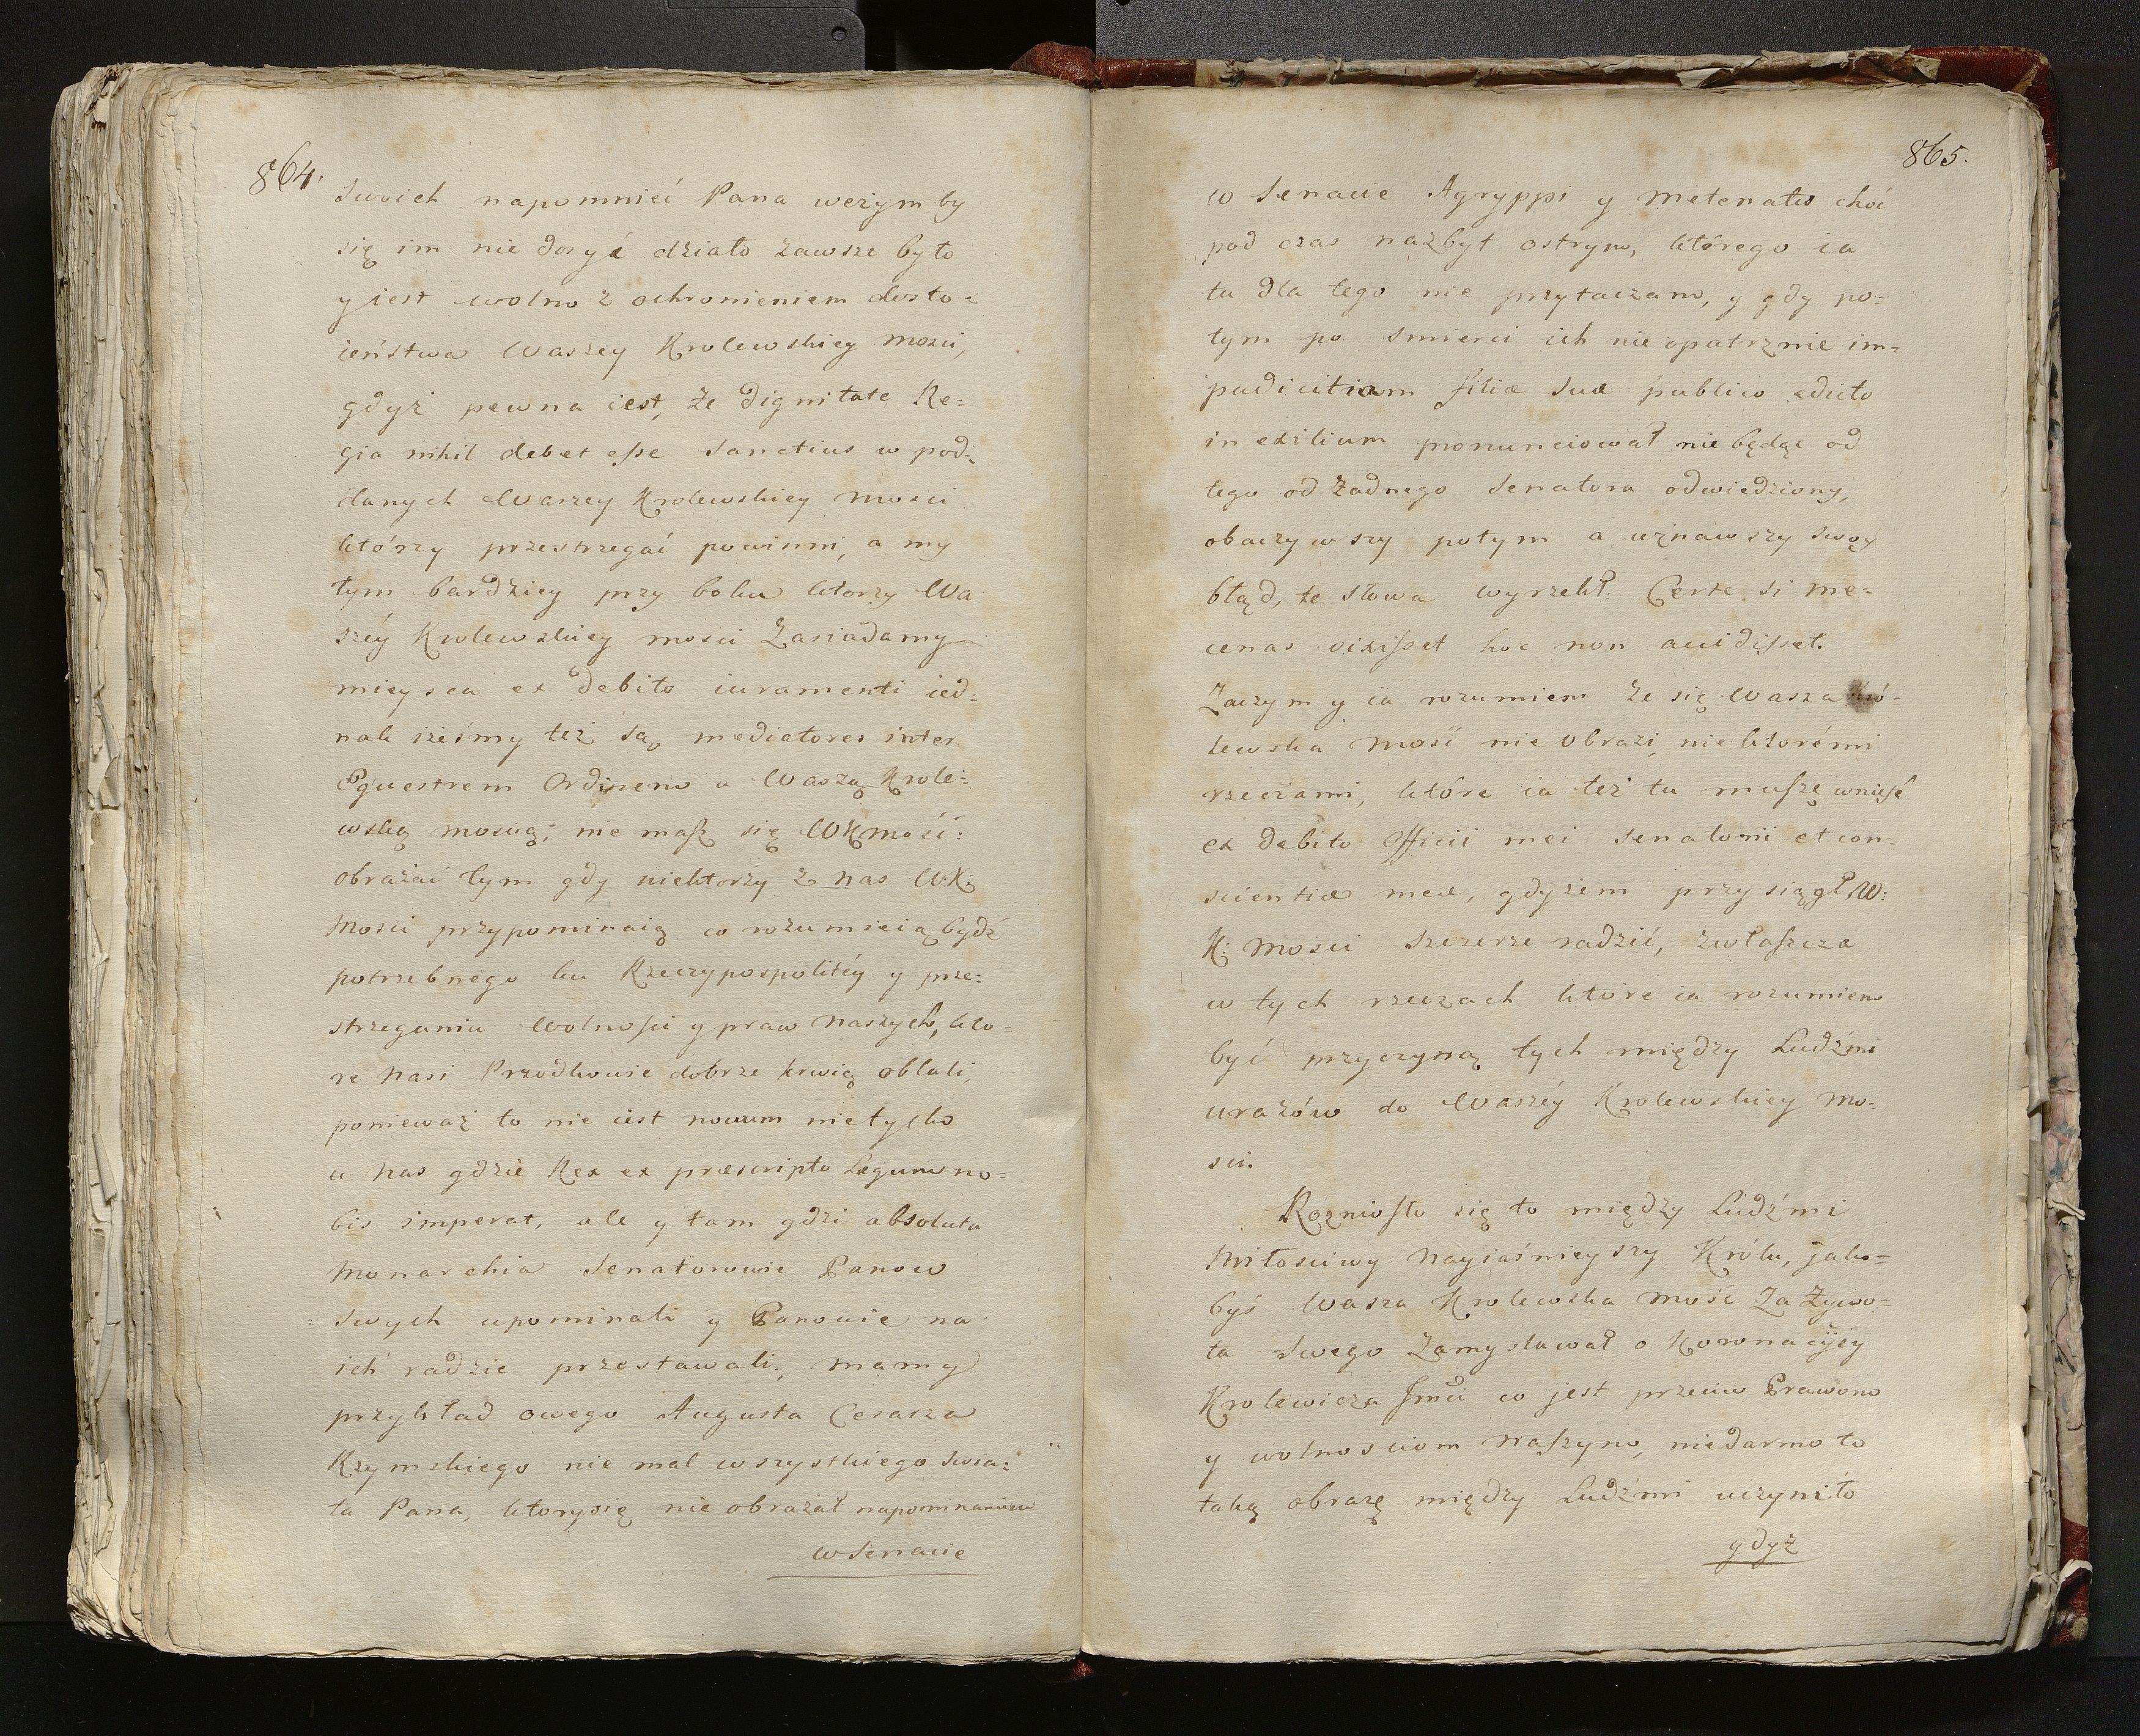 864.
swoich napomnieć Pana wczym by
się im nie dosyć działo zawsze było
y iest wolno z ochronieniem dosto=
ieństwa Waszey Krolewskiey mosci,
gdyż pewna iest, że dignitate Re=
gia nihil debet eſse sanctius w pod=
danych Waszey Krolewskiey mosci
którzy przestrzegać powinni, a my
tym bardziey przy boku ktorzy Wa
széy Krolewskiey mosci zasiadamy
mieysca ex debito iuramenti ied=
nak iżeśmy też są mediatores inter
Equestrem Ordinem a Waszą Krole=
wską moscią; nie maſz się WKmość:
obrażać tym gdy niektorzy z nas W.K.
Mosci przypominaią co rozumieią bydź
potrzebnego ku Rzeczypospolitéy y prze=
strzeganiu wolnoſci y praw naszych, kto=
re nasi Przodkowie dobrze krwią oblali,
ponieważ to nie iest novum nietylko
u nas gdzie Rex ex præscripto Legum no=
bis imperat, ale y tam gdzi absoluta
Monarchia Senatorowie Panow
swych upominali y Panowie na
ich radzie przestawali, mamy
przykład owego Augusta Cesarza
Rzymskiego nie mal wszystkiego swia=
ta Pana, ktory się nie obrażał napominaniem
w Senacie
865.
w Senacie Agryppi y Metenatis choć
pod czas nazbyt ostrym, którego ia
tu dla tego nie przytaczam, y gdy po=
tym po smierci ich nie opatrznie im=
pudicitiam filiæ suæ publico edicto
in exilium pronunciował nie będąc od
tego od żadnego Senatora odwiedziony,
obaczywszy potym a uznawszy swoy
błąd, te słowa wyrzekł: Certe si me=
cenas vixiſset hoc non accidiſset.
Zaczym y ia rozumiem że się Wasza Kró=
lewska mość nie obrazi, niektorémi
rzeczami, które ia też tu muſzę wnieſć
ex debito Officii mei Senatorii et con=
scientiæ meæ, gdyżem przysiągł W:
K: Mosci szczerze radzić, zwłaſzcza
w tych rzeczach które ia rozumiem
być przyczyną tych między Ludźmi
urazów do Waszéy Krolewskiey Mo=
sci.
Rozniosło się to między Ludźmi
Miłosciwy Nayiaśnieyszy Królu, jako=
byś Wasza Krolewska Mość Za żywo=
ta swego zamyslawał o Koronacyey
Krolewicza Jmci co jest przeciw Prawom
y wolnosciom Naſzym, niedarmo to
taką obrazę między Ludźmi uczyniło
gdyż